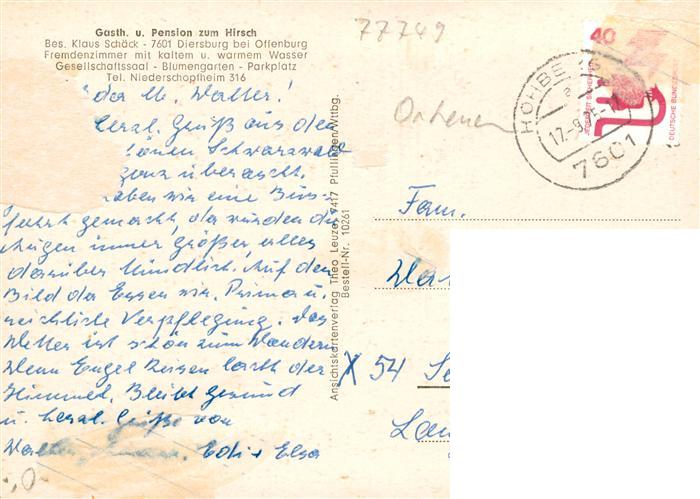 Gasth. u. Pension zum Hirsch
Bes. Klaus Schäck - 7601 Diersburg bei Offenburg
Fremdenzimmer mit kaltem u. warmem Wasser
Gesellschaftssaal - Blumengarten - Parkplatz
Tel. Niederschopfheim 316
77749
40
HOHBE
7601
DEUTSCHE BUNDES
Ortenau
Walter!
herzl. Grüße aus dem
Schwarzwald
ganz überrascht.
haben wir eine Bus-
fahrt gemacht, da wurden die
Augen immer größer, alles
darüber Mündlich. Auf dem
Bild da Essen wir. Prima u.
reichliche Verpflegung. Das
Wetter ist schön zum Wandern
Wenn Engel Reisen lacht der
Himmel. Bleibt gesund
u. herzl. Grüße von
Edi + Elsa
Ansichtskartenverlag Theo Leuze, 7417 Pfullingen/Wttbg.
Bestell-Nr. 10261
Fam.
X 54